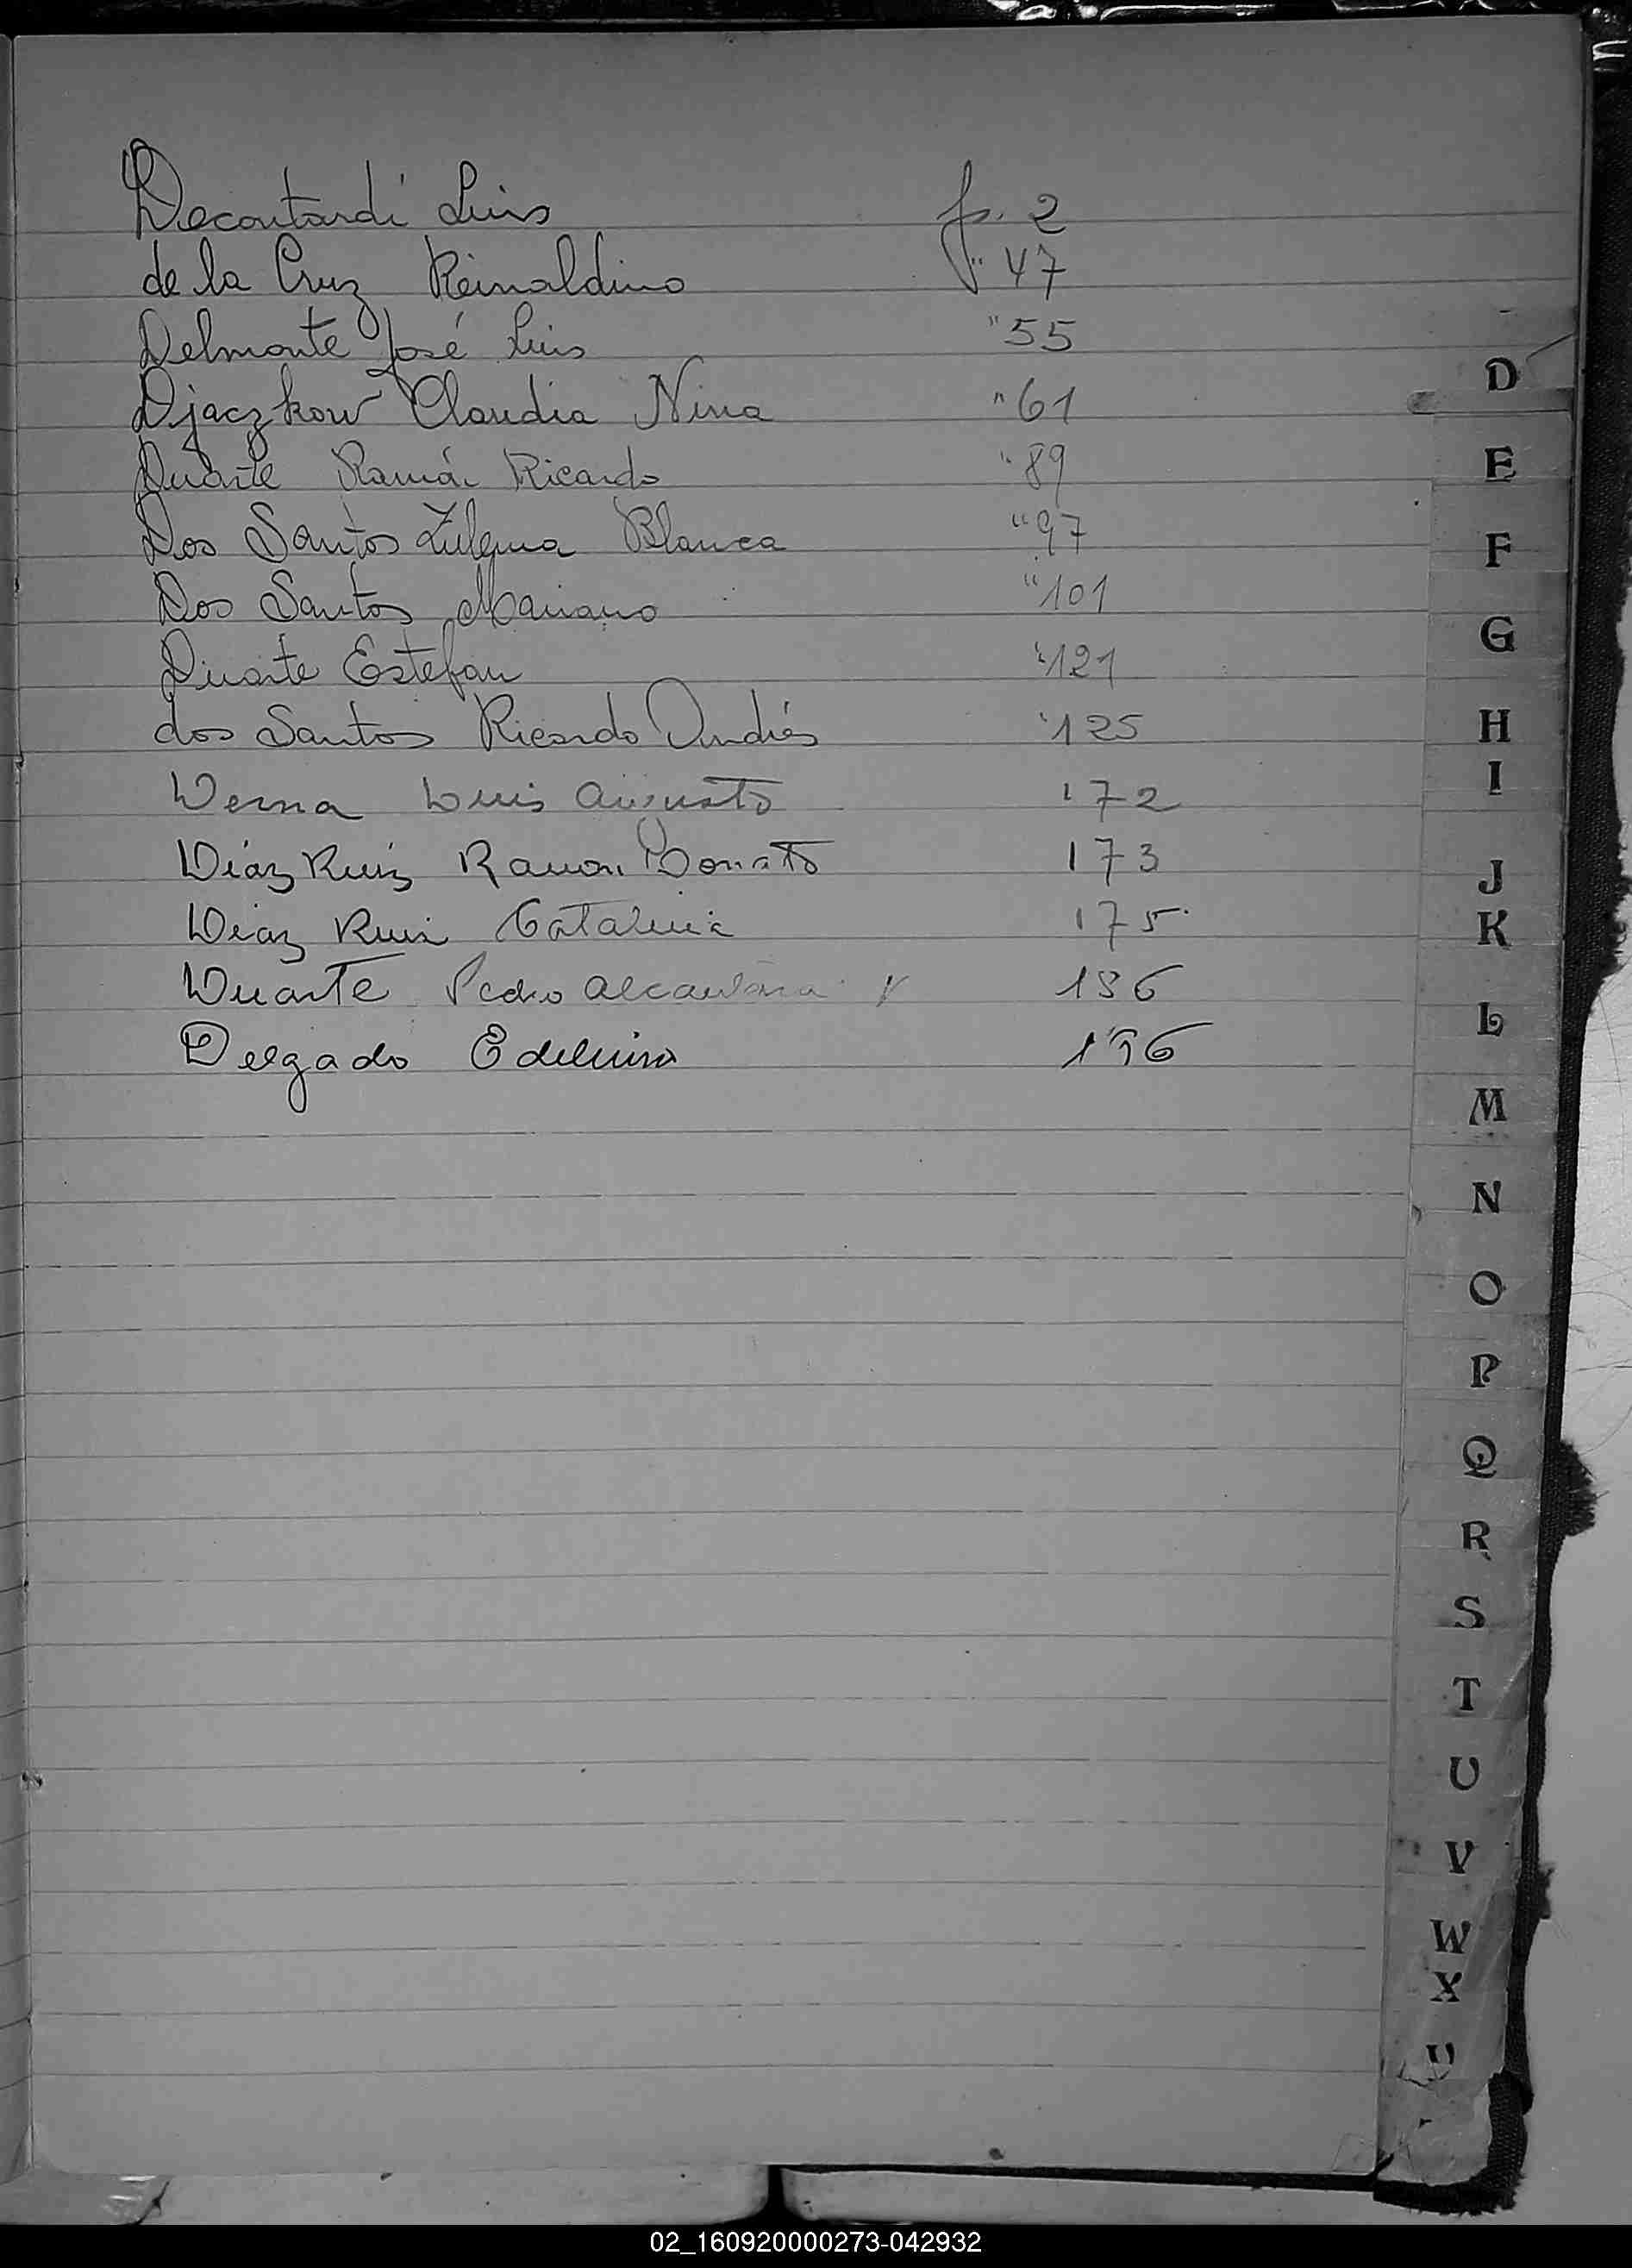 Decoutardi Luis fs. 2
de la Cruz Reinaldino " 47
Delmonte José Luis " 55
Djaczkow Claudia Nina " 61
Duarte Ramón Ricardo " 89
Dos Santos Zulema Blanca " 97
Dos Santos Mariano " 101
Duarte Estefan " 121
dos Santos Ricardo Andrés " 125
Derna Luis Augusto 172
Díaz Ruiz Ramon Donato 173
Diaz Ruiz Catalina 175
Duarte Pedro Alcantara
Delgado
D
E
F
G
H
I
J
K
L
M
N
O
P
Q
R
S
T
U
V
W
X
02_160920000273-042932